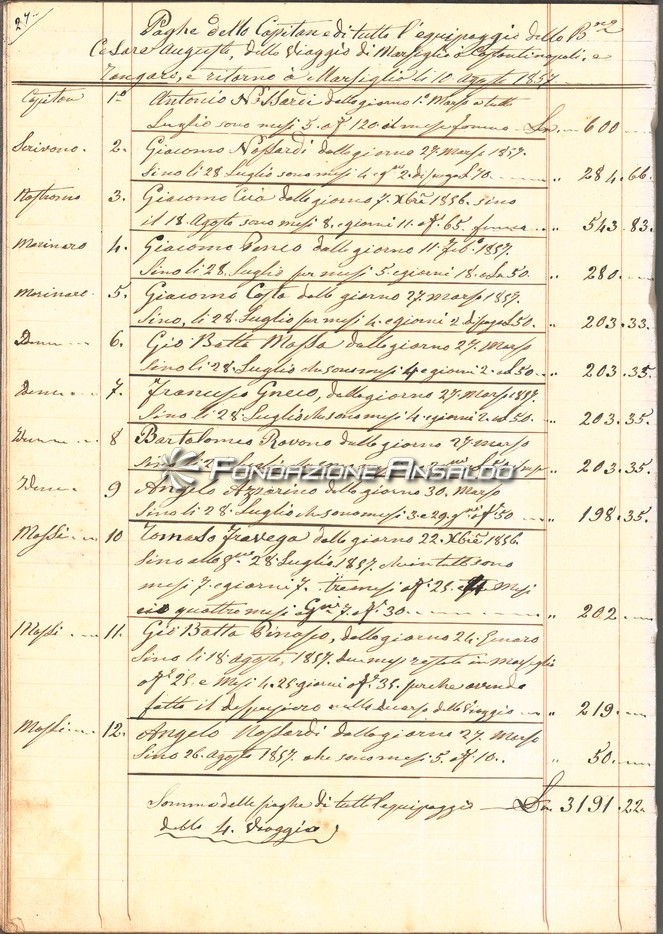 27..
Paghe dello Capitan e di tutto l'equipaggio dello B.no
Cesare Augusto, dello Viaggio di Marsiglia a Costantinopoli, e
e ritorno a Marsiglia li 10. Agosto 1857
Capitan 1º Antonio Ns Bardi dello giorno 1º Marso a tutto
Luglio sono mesi 5. a f 120 il mese L.n 600
Scrivano. 2. Giacomo Nossardi dallo giorno 27. Marso 1857.
Sino li 28 Luglio sono mesi 4 e g.ni 2 70. " 284.66.
Nostromo 3. Giacomo dallo giorno 7. Xbre 1856. sino
il 18. Agosto sono mesi 8. e giorni 11. a f 65. " 543.83.
Marinaro 4. Giacomo dallo giorno 11. Feb.o 1857.
Sino li 28. Luglio per mesi 5. e giorni 18. a L.n 50. " 280.
Marinaro. 5. Giacomo Costa dallo giorno 27. Marso 1857.
Sino, li 28. Luglio per mesi 4. e giorni 2. 50. " 203.33.
Idem 6. Gio Batta Massa dallo giorno 27. Marso
Sino li 28. Luglio che sono mesi 4 e giorni 2. 50. " 203.35.
Idem 7. Francesco Greco, dallo giorno 27. Marso 1857.
Sino li 28. Luglio che sono mesi 4. e giorni 2. 50. " 203.35.
Idem 8 Bartolomeo Rovono dallo giorno 27. marso
FONDAZIONE ANSALDO
" 203.35.
Idem 9 Angelo dello giorno 30. Marso
Sino li 28. Luglio che sono mesi 3. e 29. g.ni f 50 " 198.35.
Mossi 10 Tomaso Travega dallo giorno 22. Xbre 1856.
Sino allo 28. Luglio 1857. che in tutto sono
mesi 7. e giorni 7. tre mesi a f 25. Mesi
quattro mesi g.ni 7. a f 30. " 202.
Mossi 11. Gio Batta Pinasso, dello giorno 24. Genaro
Sino li 18. agosto, 1857. due mesi restato in Marsiglia
a f 25. e Mesi 4. 25 giorni a f 35. perche avendo
fatto il dello Viaggio " 219.
Mossi 12. Angelo Nossardi dallo giorno 27. Marso
Sino 26. Agosto 1857. che sono mesi 5. a f 10.. " 50.
Somma delle paghe di tutto l'equipaggio L.n 3191.22.
dello 4. Viaggio